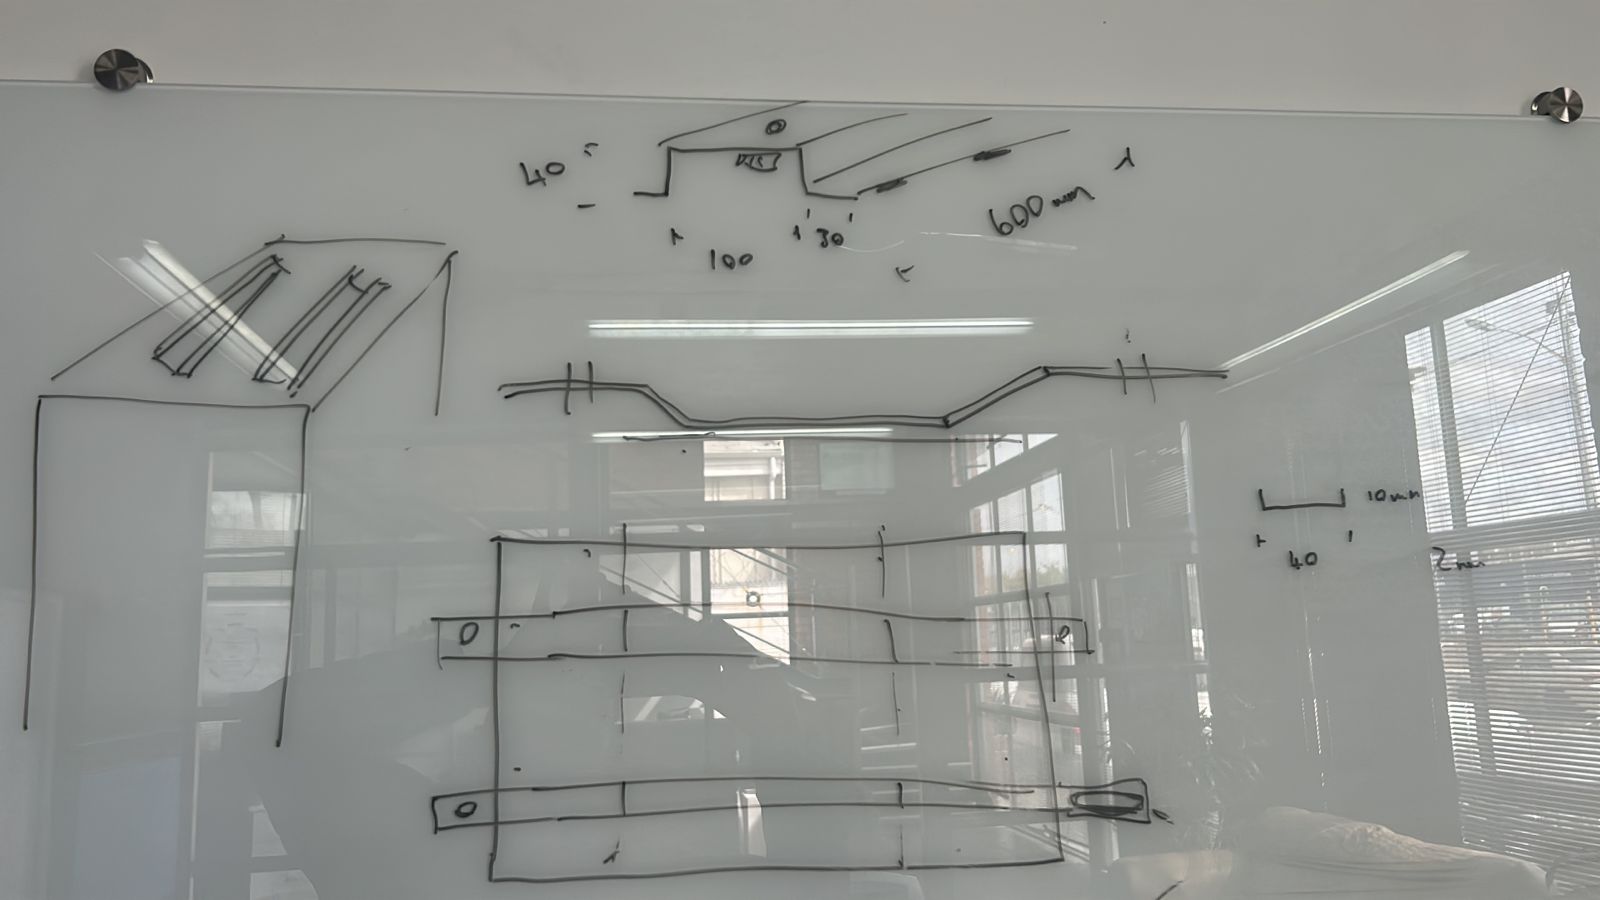 40
100
30
600mm
10mm
40
2mm